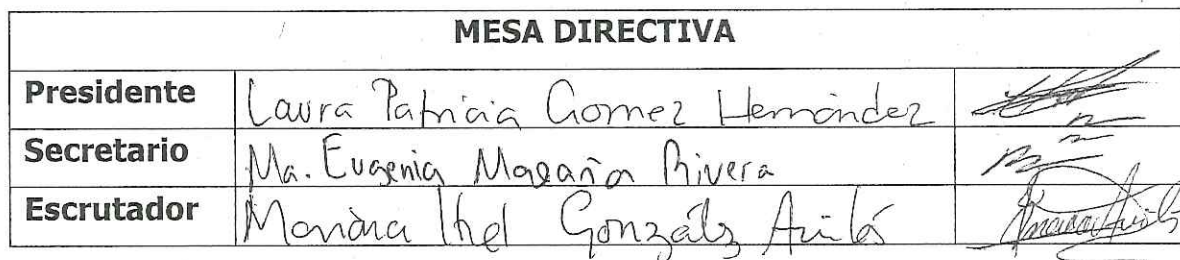 MESA DIRECTIVA
Presidente Laura Patricia Gomez Hernández
Secretario Ma. Eugenia Magaña Rivera
Escrutador Mariana Itzel González Avilés